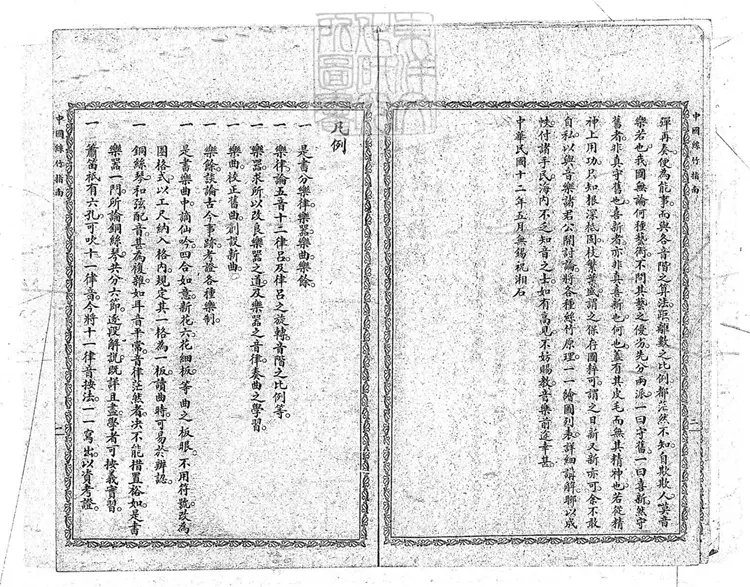 中國絲竹指南
彈再奏便為能事而與各音階之算法距離數之比例都茫然不知自欺欺人莫音
樂若也我國無論何種藝術不問其藝之優劣先分兩派一曰守舊一曰喜新然守
舊者非真守舊也喜新者亦非真喜新也何也蓋有其皮毛而無其精神也若從精
神上用功只知根深柢固枝繁葉盛謂之保存國粹可謂之日新又新亦可余不敢
自私以與音樂諸君公開討論將各種絲竹原理一一繪圖列表詳細講解聊以成
帙付諸手民海內不乏知音之士如有高見不妨賜教音樂前途幸甚
中華民國十二年五月無錫祝湘石
二
凡例
一 是書分樂律樂器樂曲樂餘
一 樂律論五音十二律呂及律呂之旋轉音階之比例等
一 樂器求所以改良樂器之道及樂器之音律奏曲之學習
一 樂曲校正舊曲創設新曲
一 樂餘談論古今事跡考證各種樂制
一 是書樂曲中謫仙吟四合如意新花六花細板等曲之板眼不用符號改為
圈格式以工尺納入格內規定其一格為一板讀曲時可易於辨認
一 銅絲琴和弦配音甚為複雜如耳音平常音律茫然者決不能措置裕如是書
樂器一門所論銅絲琴共分六節逐段解說既詳且盡學者可按義實習
一 簫笛祇有六孔可吹十一律音今將十一律音按法一一寫出以資考證
中國絲竹指南
一